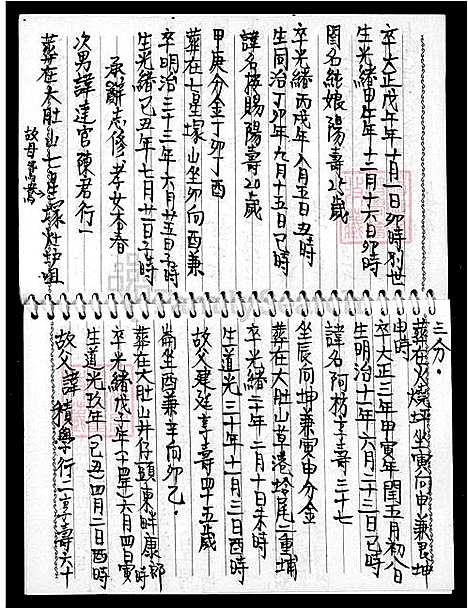 卒大正戊午年十月一日卯時別世
生光緒甲申年十二月十六日卯時
閨名純娘陽壽25歲
卒光緒丙戌年八月五日丑時
生同治丁卯年九月十五日巳時
諱名接賜陽壽20歲
甲庚分金丁卯丁酉
葬在七星塚山坐卯向酉兼
卒明治三十三年六月廿五日子時
生光緒己丑年七月廿一日子時
承辭志修孝女杏春
次男諱達官陳君行一
葬在大肚山七星塚
故母
三分．
葬在火燒坪坐寅向申兼艮坤
申時
卒大正三年甲寅年閏五月初八日
生明治十一年六月二十三日巳時
諱名阿枋享壽三十七
坐辰向坤兼寅申分金
葬在大肚山草港尾二重埔
卒光緒二十年二月十日未時
生道光三十年十一月三日酉時
故父建延享壽四十五歲
崙坐酉兼辛向卯乙．
葬在大肚山井仔頭東畔康
卒光緒戊子年(十四年)六月四日寅時
生道光玖年(己丑)四月二日酉時
故父諱積學行二享壽六十